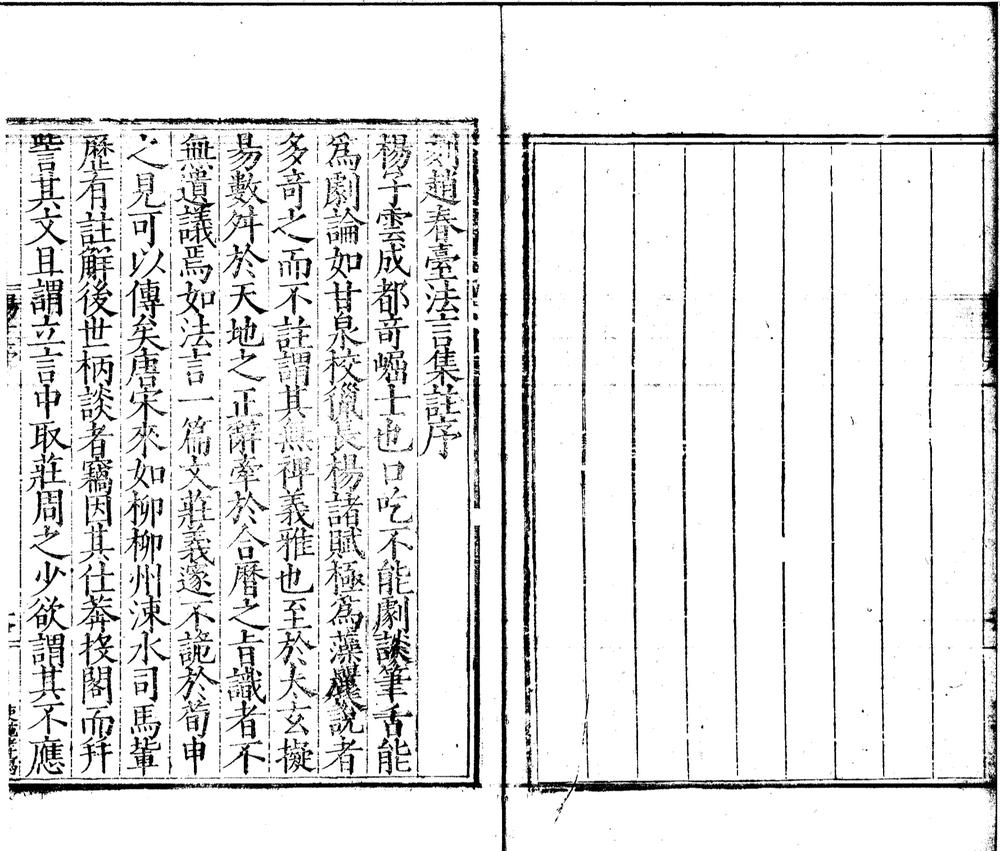 刻趙春臺法言集註序
楊子雲成都竒崛士也口吃不能劇談筆舌能
為劇論如甘泉校獵長楊諸賦極為藻麗說者
多竒之而不註謂其無裨義雅也至於太玄擬
易數舛於天地之正辭牽於合曆之旨識者不
無遺議焉如法言一篇文莊義邃不詭於荀申
之見可以傳矣唐宋來如柳柳州涑水司馬軰
歷有註解後世柄談者竊因其仕莽投閣而幷
訾其文且謂立言中取莊周之少欲謂其不應